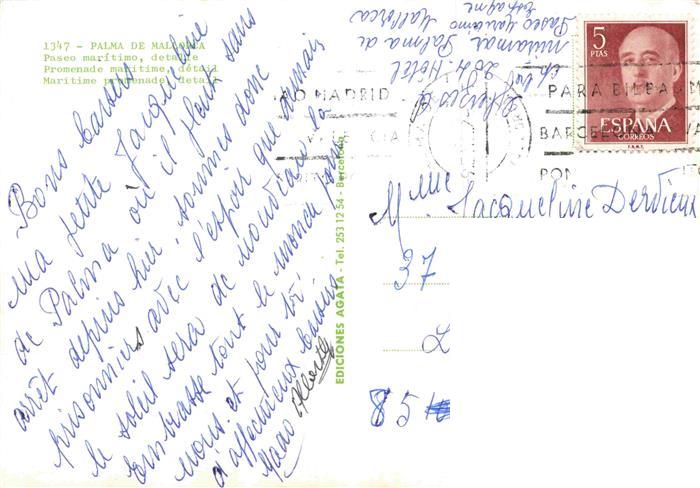 1347 - PALMA DE MALLORCA
Paseo marítimo, detalle
Promenade maritime, détail
Maritime promenade, detail
Bons baisers
ma petite Jacqueline
de Palma où il pleut sans
arrêt depuis hier, sommes donc
prisonniers avec l'espoir que demain
le soleil sera de nouveau là
Embrasse tout le monde pour
nous et pour toi
d'affectueux baisers
Alberte
EDICIONES AGATA - Tel. 253 12 54 - Barcelona
Hotel
Miramar Palma de
Paseo Mariano Mallorca
Espagne
MADRID
PARA BILBAO
5
PTAS
ESPAÑA
CORREOS
F.N.M.T.
Mme Jacqueline Derdieux
37
L
85